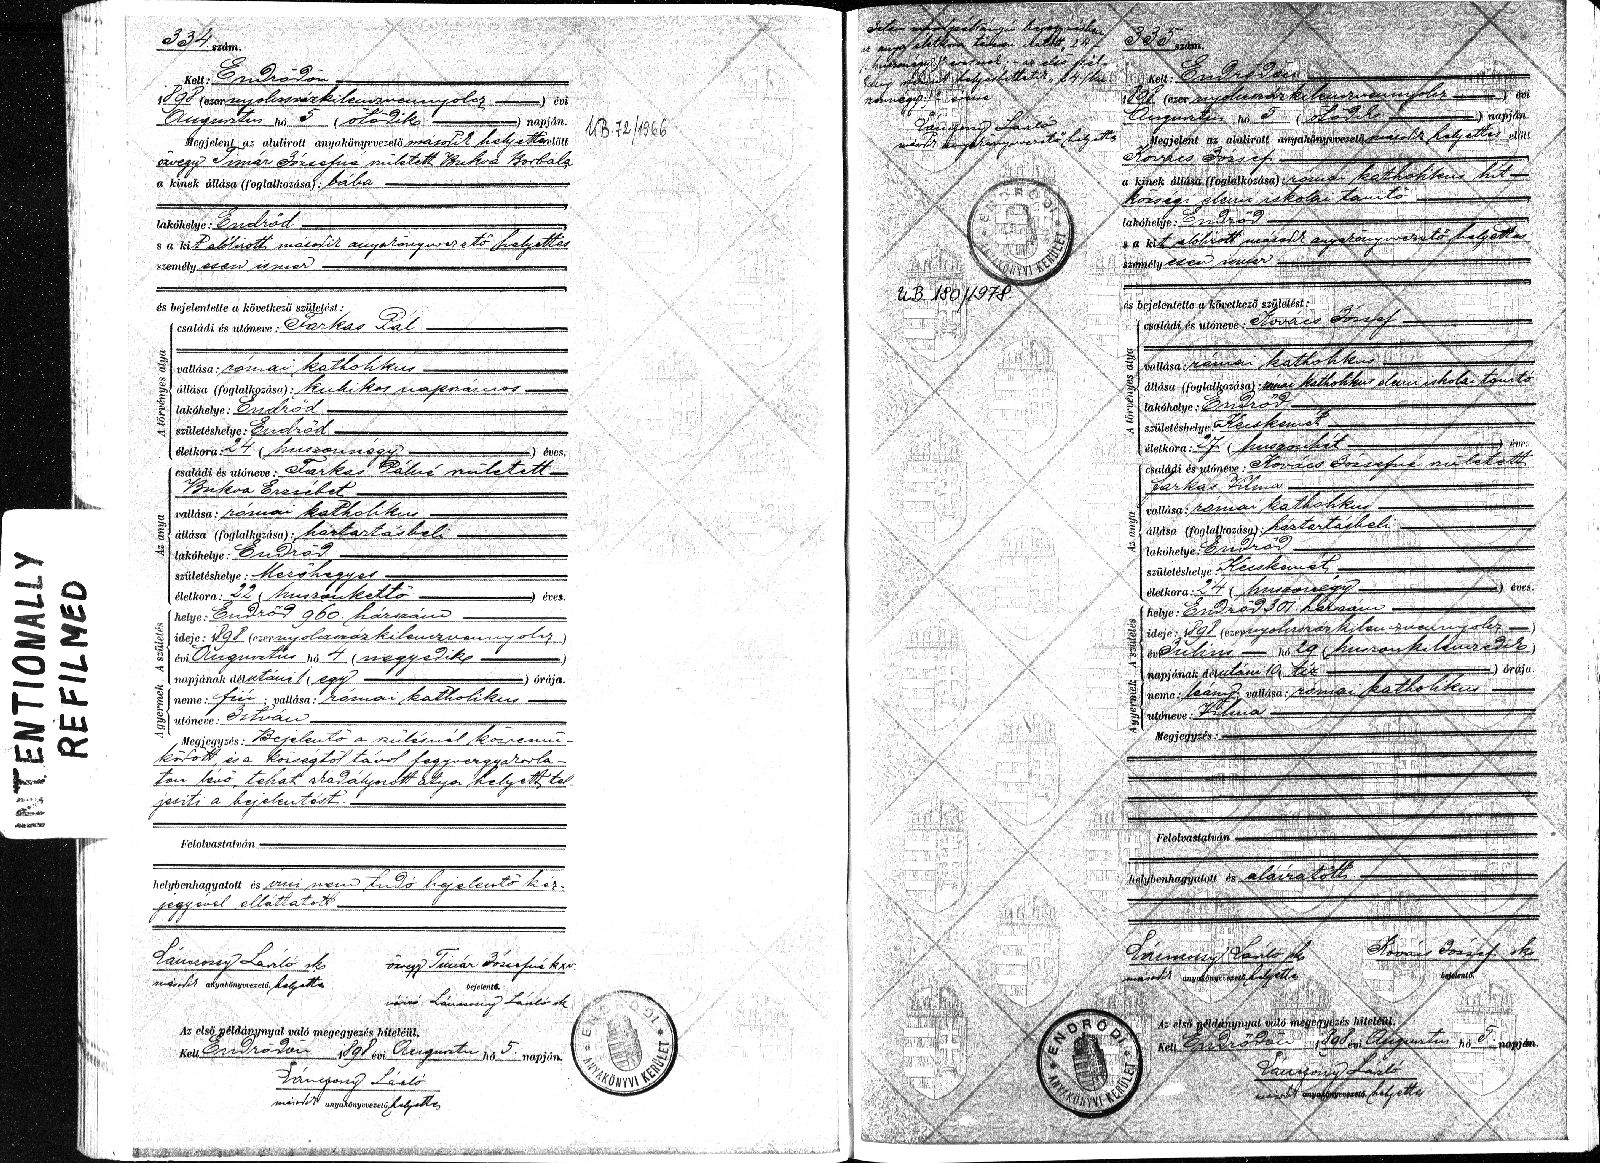 INTENTIONALLY
REFILMED
334 szám.
Kelt: Endrődön
1898 (ezernyolczszázkilenczvennyolcz) évi
Augusztus hó 5 (ötödik) napján.
Megjelent az alulirott anyakönyvvezető második helyettes előtt
özvegy Timár Józsefné született Bukva Borbála
a kinek állása (foglalkozása): bába
lakóhelye: Endrőd
s a kit alólirott második anyakönyvvezető helyettes
személyesen ismer
és bejelentette a következő születést:
A törvényes atya
családi és utóneve: Farkas Pál
vallása: római katholikus
állása (foglalkozása): kubikos napszámos
lakóhelye: Endrőd
születéshelye: Endrőd
életkora: 24 (huszonnégy) éves.
Az anya
családi és utóneve: Farkas Pálné született
Bukva Erzsébet
vallása: római katholikus
állása (foglalkozása): háztartásbeli
lakóhelye: Endrőd
születéshelye: Mezőhegyes
életkora: 22 (huszonkettő) éves.
A születés
helye: Endrőd 960 házszám
ideje: 1898 (ezernyolczszázkilenczvennyolcz)
évi Augusztus hó 4 (negyedik)
napjának délutáni 1 (egy) órája.
A gyermek
neme: fiú; vallása: római katholikus
utóneve: István
Megjegyzés: Bejelentő a szülésnél közremű-
ködött és a községtől távol fegyvergyakorla-
ton levő, tehát akadályozott atya helyett tel-
jesiti a bejelentést.
Felolvastatván
helybenhagyatott és irni nem tudó bejelentő kéz-
jegyével elláttatott
Lánczony László sk
második anyakönyvvezető helyettes
özvegy Timár Józsefné k.x.v.
bejelentő.
Lánczony László sk
Az első példánynyal való megegyezés hiteléül.
Kelt Endrődön 1898 évi Augusztus hó 5 napján.
Lánczony László
második anyakönyvvezető helyettes
ENDRŐDI
ANYAKÖNYVI KERÜLET
UB. 72/1966
Lánczony László
második anyakönyvvezető helyettes
ENDRŐDI
ANYAKÖNYVI KERÜLET
UB. 180/1978
335 szám.
Kelt: Endrődön
1898 (ezernyolczszázkilenczvennyolcz) évi
Augusztus hó 5 (ötödik) napján.
Megjelent az alulirott anyakönyvvezető második helyettes előtt
Kovács József
a kinek állása (foglalkozása): római katholikus hit-
községi elemi iskolai tanitó
lakóhelye: Endrőd
s a kit alólirott második anyakönyvvezető helyettes
személyesen ismer
és bejelentette a következő születést:
A törvényes atya
családi és utóneve: Kovács József
vallása: római katholikus
állása (foglalkozása): római katholikus elemi iskolai tanitó
lakóhelye: Endrőd
születéshelye: Kecskemét
életkora: 27 (huszonhét) éves.
Az anya
családi és utóneve: Kovács Józsefné született
Farkas Vilma
vallása: római katholikus
állása (foglalkozása): háztartásbeli
lakóhelye: Endrőd
születéshelye: Kecskemét
életkora: 24 (huszonnégy) éves.
A születés
helye: Endrőd 301 házszám
ideje: 1898 (ezernyolczszázkilenczvennyolcz)
évi Július hó 29 (huszonkilenczedik)
napjának délutáni 10 (tíz) órája.
A gyermek
neme: leány; vallása: római katholikus
utóneve: Vilma
Megjegyzés:
Felolvastatván
helybenhagyatott és aláiratott
Lánczony László sk
második anyakönyvvezető helyettes
Kovács József sk
bejelentő.
Az első példánynyal való megegyezés hiteléül.
Kelt Endrődön 1898 évi Augusztus hó 5 napján.
Lánczony László
második anyakönyvvezető helyettes
ENDRŐDI
ANYAKÖNYVI KERÜLET